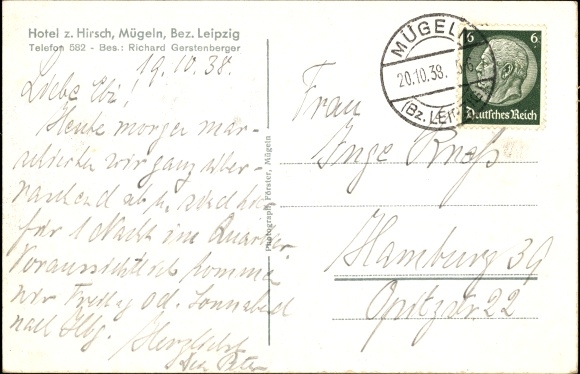 Hotel z. Hirsch, Mügeln, Bez. Leipzig
Telefon 582 - Bes.: Richard Gerstenberger
19.10.38.
Liebe
Heute morgen mar-
schierten wir ganz über-
raschend ab u. sind hier
für 1 Nacht im Quartier.
Voraussichtlich kommen
wir Freitag od. Sonnabend
nach Hbg. Herzlichst
Dein Peter
Photograph Förster, Mügeln
MÜGELN
20.10.38.
(Bz. LEIPZIG)
6 6
Deutsches Reich
Frau
Inge
Hamburg 39
Opitzstr. 22